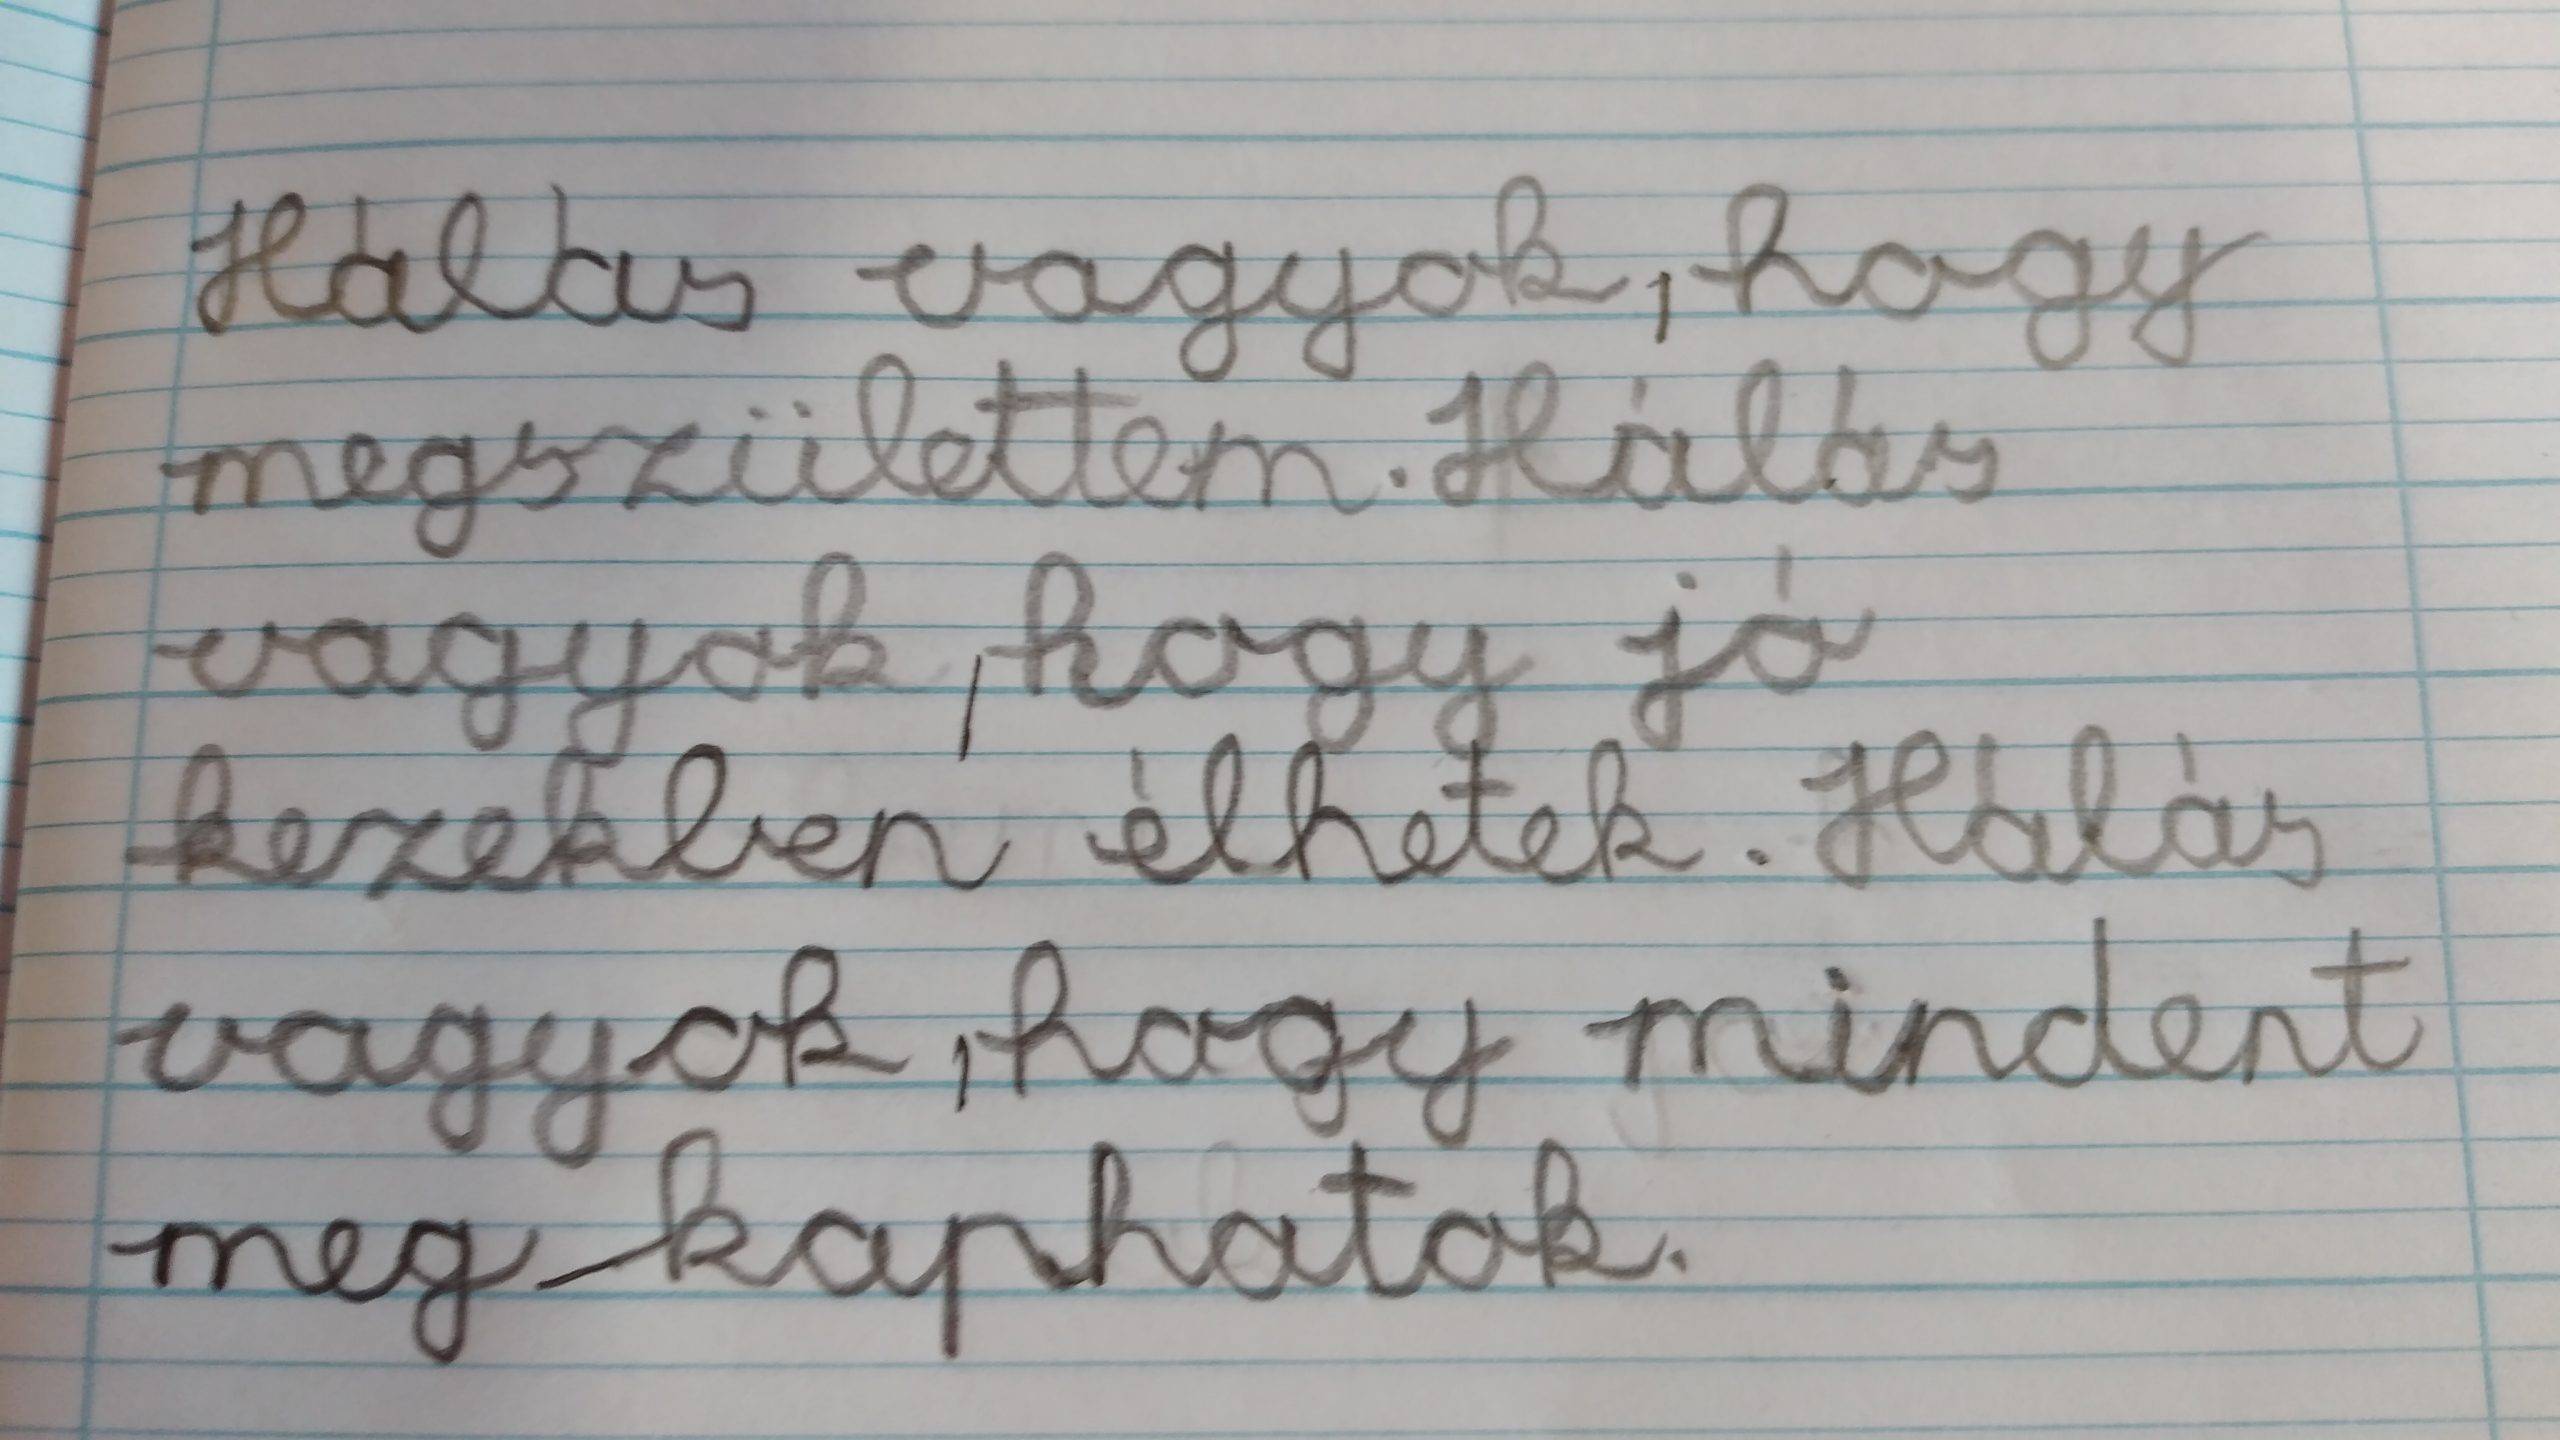 Hálás vagyok, hogy
megszülettem. Hálás
vagyok, hogy jó
kezekben élhetek. Hálás
vagyok, hogy mindent
meg kaphatok.